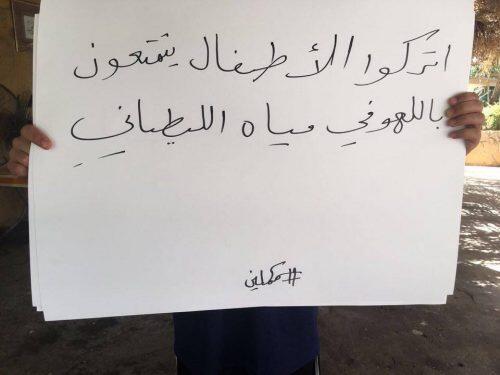 اتركوا الأطفال يتمتعون
باللهو في مياه الليطاني
#مكملين